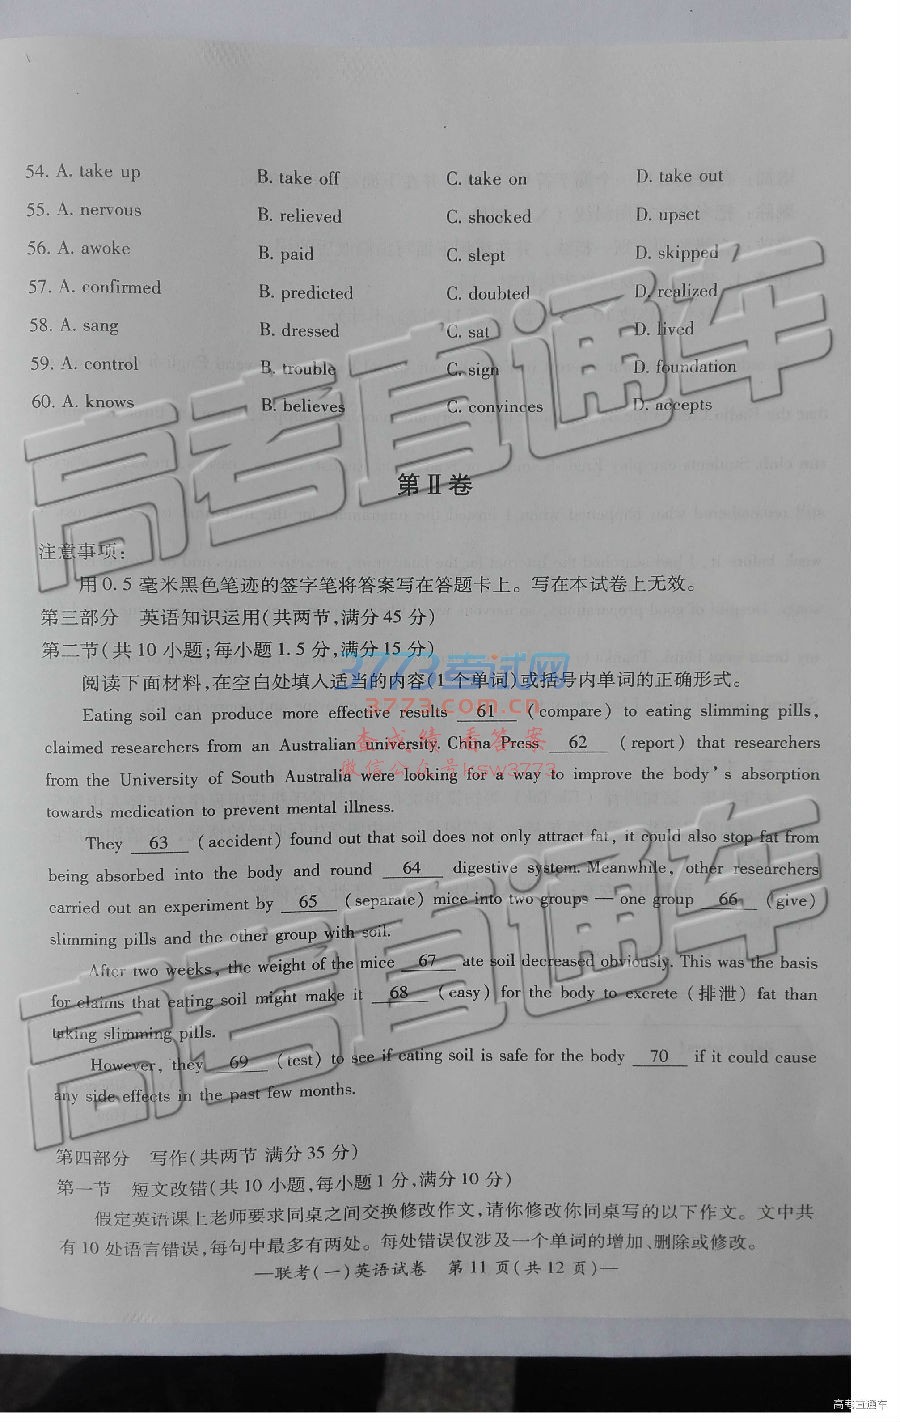 54. A. take up B. take off C. take on D. take out
55. A. nervous B. relieved C. shocked D. upset
56. A. awoke B. paid C. slept D. skipped
57. A. confirmed B. predicted C. doubted D. realized
58. A. sang B. dressed C. sat D. lived
59. A. control B. trouble C. sign D. foundation
60. A. knows B. believes C. convinces D. accepts
高考直通车
第Ⅱ卷
注意事项:
用0.5毫米黑色笔迹的签字笔将答案写在答题卡上。写在本试卷上无效。
第三部分 英语知识运用(共两节,满分45分)
第二节(共10小题;每小题1.5分,满分15分)
3773考试网
阅读下面材料,在空白处填入适当的内容(1个单词)或括号内单词的正确形式。
3773.com.cn
Eating soil can produce more effective results 61 (compare) to eating slimming pills,
查成绩 看答案
claimed researchers from an Australian university. China Press 62 (report) that researchers
微信公众号ksw3773
from the University of South Australia were looking for a way to improve the body's absorption
towards medication to prevent mental illness.
They 63 (accident) found out that soil does not only attract fat, it could also stop fat from
being absorbed into the body and round 64 digestive system. Meanwhile, other researchers
carried out an experiment by 65 (separate) mice into two groups — one group 66 (give)
slimming pills and the other group with soil.
After two weeks, the weight of the mice 67 ate soil decreased obviously. This was the basis
for claims that eating soil might make it 68 (easy) for the body to excrete (排泄) fat than
taking slimming pills.
高考直通车
However, they 69 (test) to see if eating soil is safe for the body 70 if it could cause
any side effects in the past few months.
第四部分 写作(共两节 满分35分)
第一节 短文改错(共10小题,每小题1分,满分10分)
假定英语课上老师要求同桌之间交换修改作文,请你修改你同桌写的以下作文。文中共
有10处语言错误,每句中最多有两处。每处错误仅涉及一个单词的增加、删除或修改。
—联考(一)英语试卷 第11页(共12页)—
高考直通车